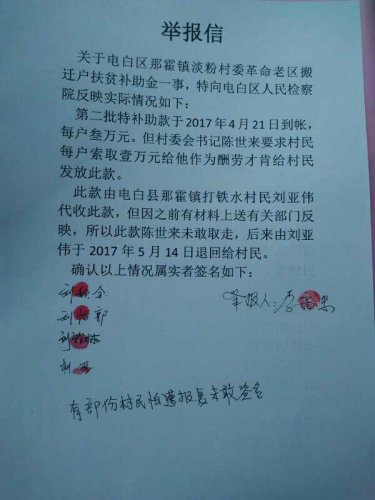 举报信
关于电白区那霍镇淡粉村委革命老区搬
迁户扶贫补助金一事，特向电白区人民检察
院反映实际情况如下：
第二批特补助款于 2017 年 4 月 21 日到帐，
每户叁万元。但村委会书记陈世来要求村民
每户索取壹万元给他作为酬劳才肯给村民
发放此款。
此款由电白县那霍镇打铁水村民刘亚伟
代收此款，但因之前有材料上送有关部门反
映，所以此款陈世来未敢取走，后来由刘亚
伟于 2017 年 5 月 14 日退回给村民。
确认以上情况属实者签名如下：
举报人：李
刘
刘
刘
刘
有部份村民怕遭报复未敢签名